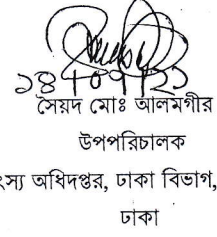 ১৪/০৭/২১
সৈয়দ মোঃ আলমগীর
উপপরিচালক
ৎস্য অধিদপ্তর, ঢাকা বিভাগ,
ঢাকা